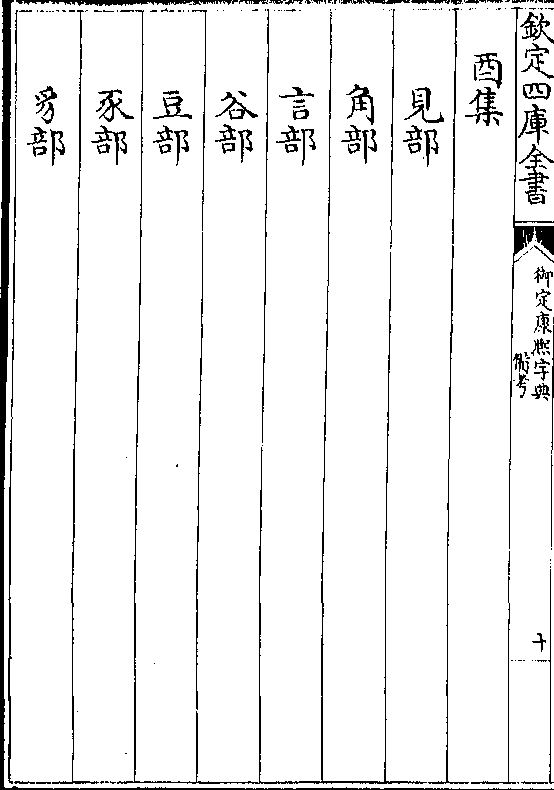 欽定四庫全書
御定康熙字典
備考
十
酉集
見部
角部
言部
谷部
豆部
豕部
豸部